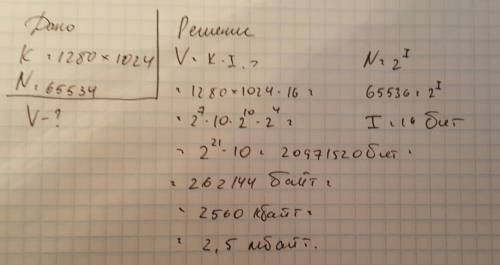 Дано
K = 1280 × 1024
N = 65534
V - ?
Решение
V = K · I =
= 1280 × 1024 · 16 =
= 2^7 · 10 · 2^10 · 2^4 =
= 2^21 · 10 = 20971520 бит =
= 262144 байт =
= 2560 кбайт =
= 2,5 мбайт.
N = 2^I
65536 = 2^I
I = 16 бит